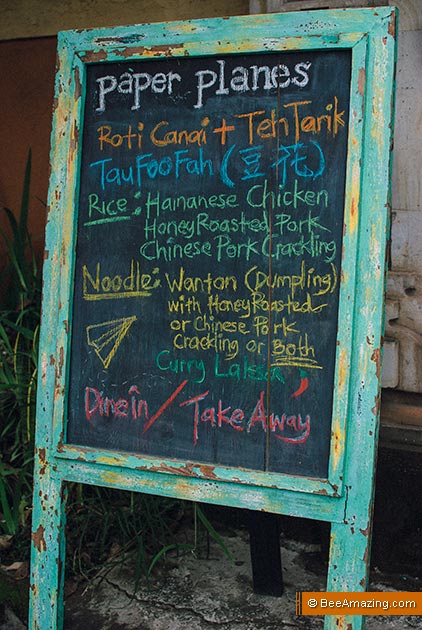 paper planes
Roti Canai + Teh Tarik
Tau Foo Fah (豆花)
Rice: Hainanese Chicken
Honey Roasted Pork
Chinese Pork Crackling
Noodle: Wanton (Dumpling)
with Honey Roasted
or Chinese Pork
Crackling or Both
Curry Laksa
Dine in / Take Away
© BeeAmazing.com